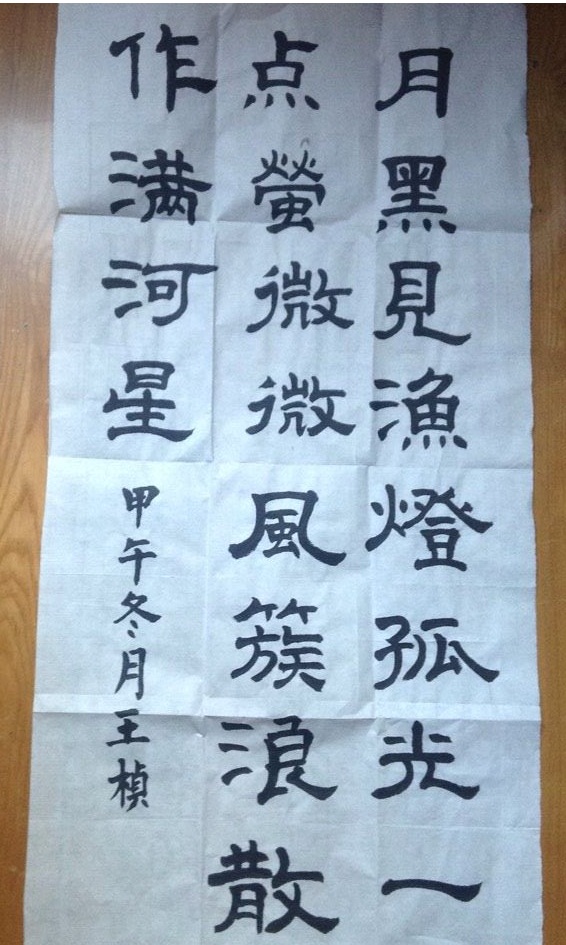 月黑見漁燈孤光一
点螢微微風簇浪散
作满河星
甲午冬月王楨